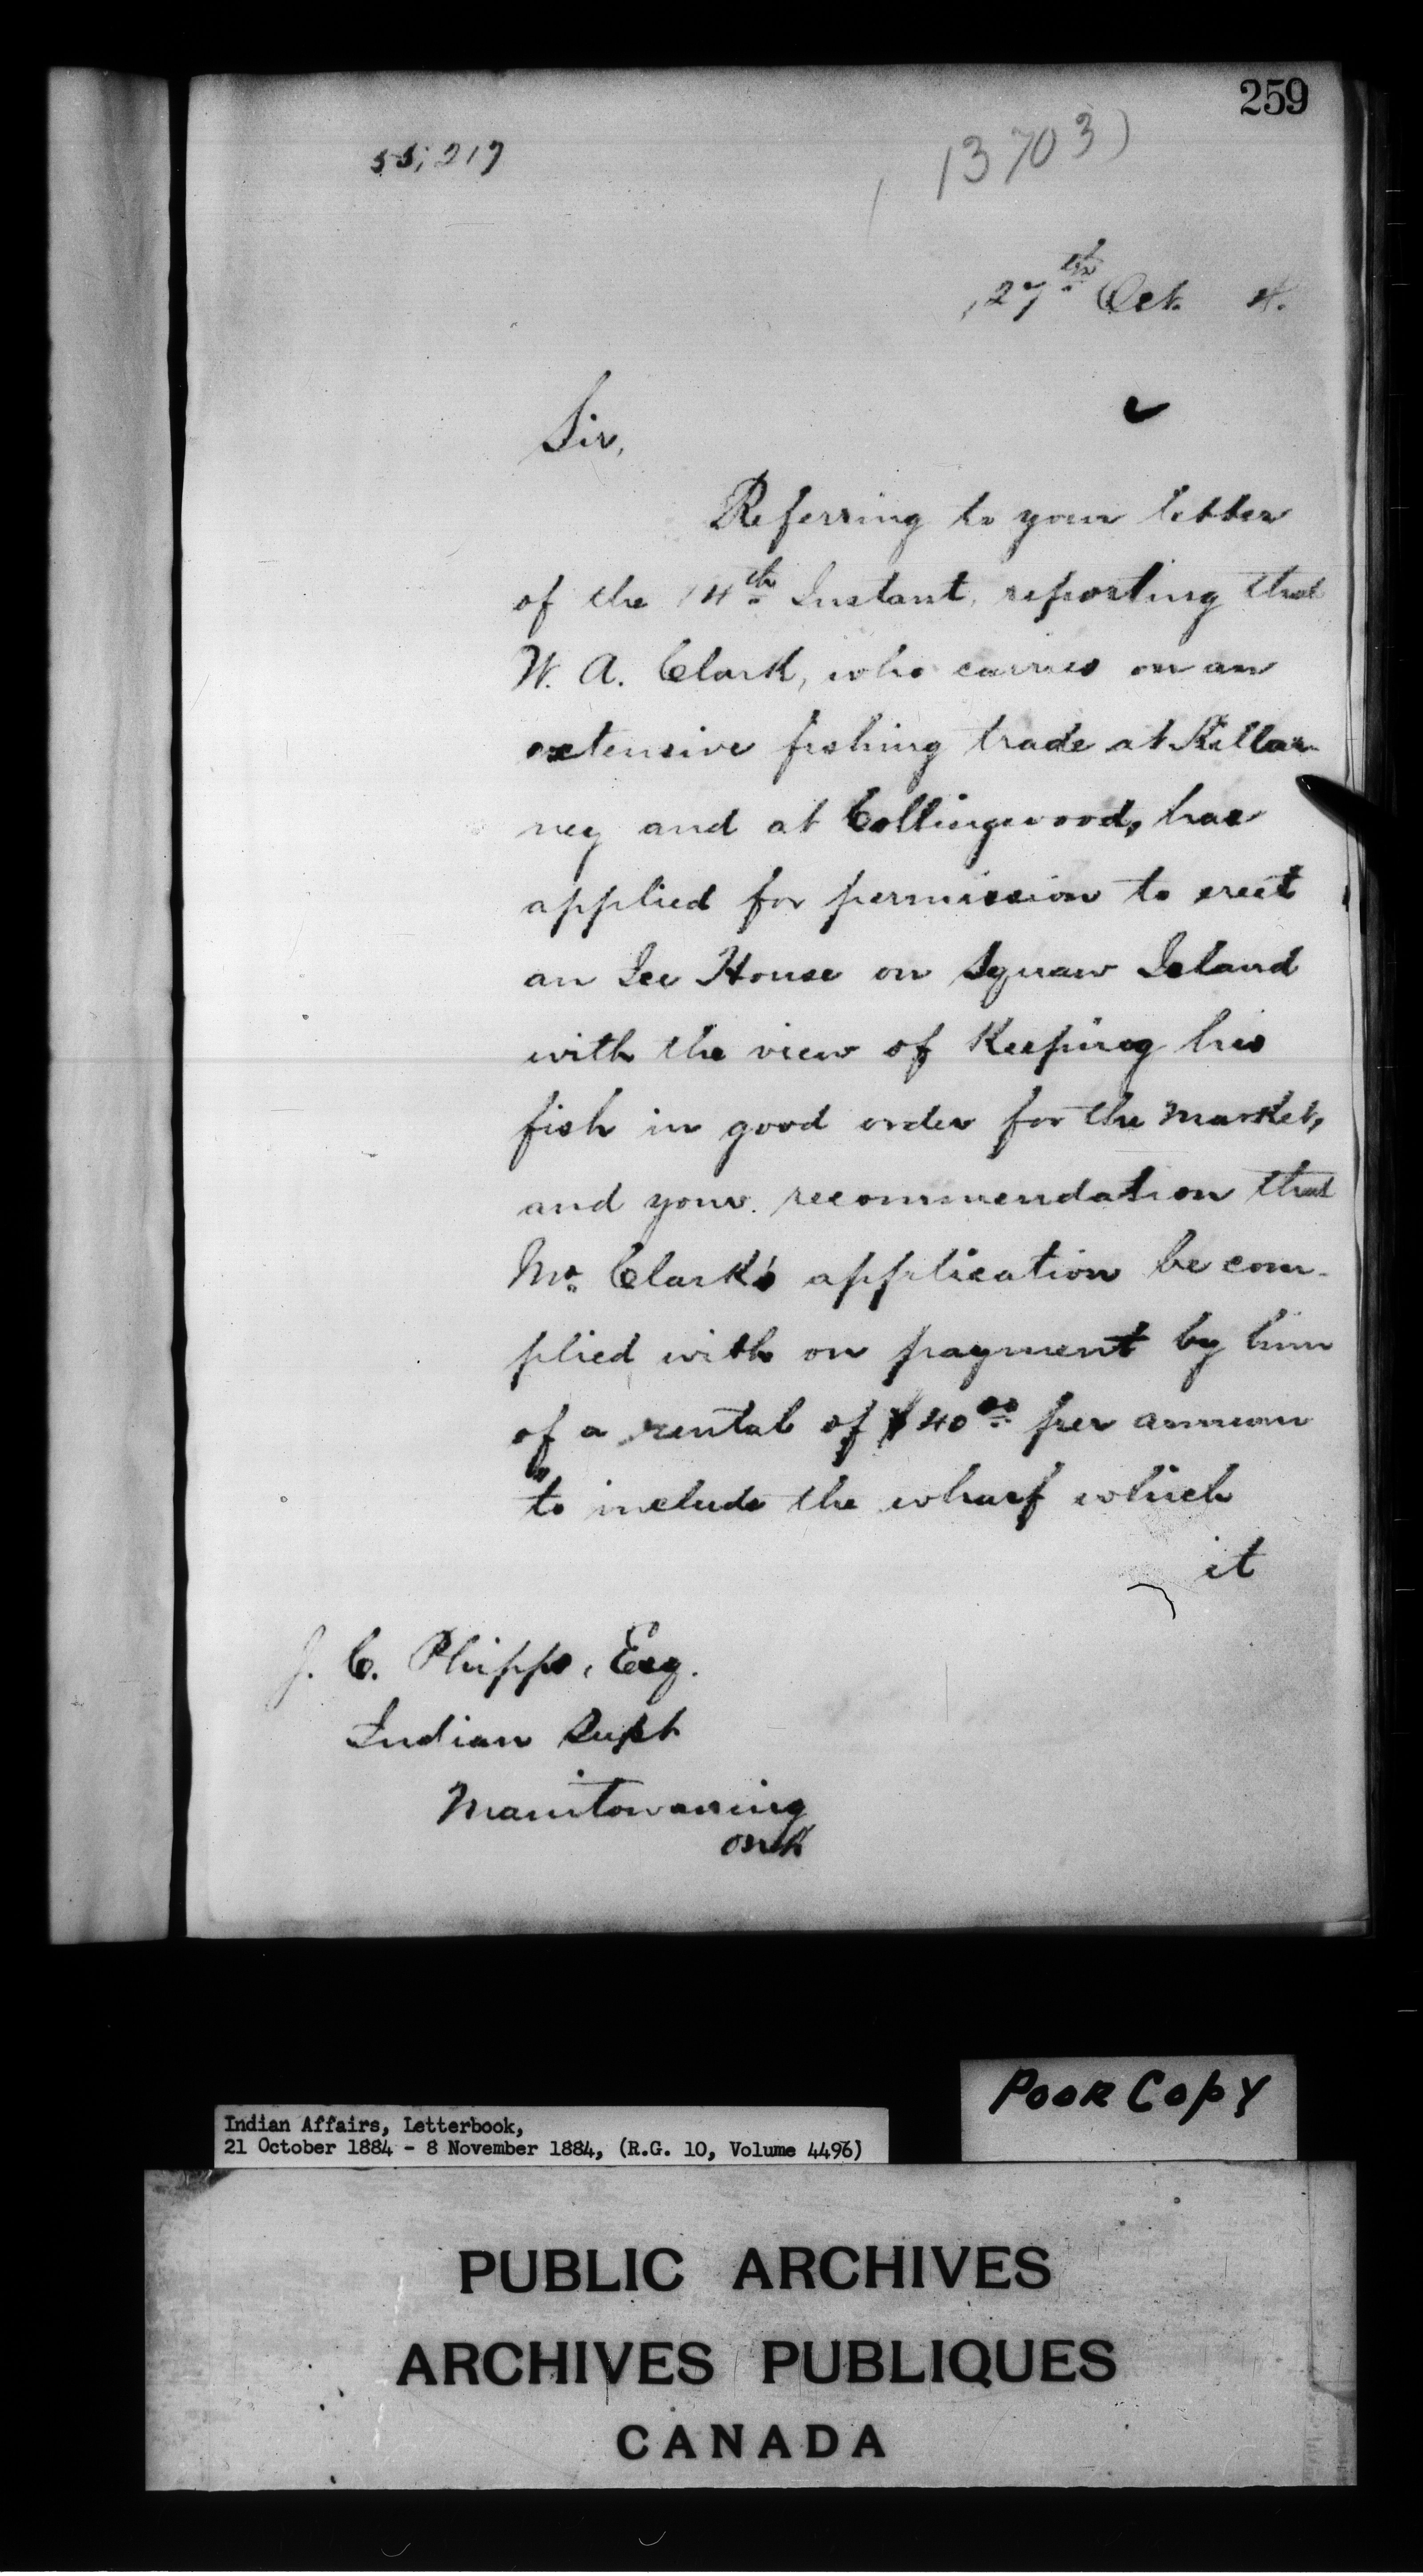 259
55,217
13703)
27th Oct. 4.
Sir,
Referring to your letter
of the 14th Instant, reporting that
W. A. Clark, who carries on an
extensive fishing trade at Killar-
ney and at Collingwood, has
applied for permission to erect
an Ice House on Squaw Island
with the view of Keeping his
fish in good order for the Market,
and your recommendation that
Mr. Clark's application be com-
plied with on payment by him
of a rental of $40.00 per annum
to include the wharf which
it
J. C. Phipps, Esq.
Indian Supt
Manitowaning
Ont
Poor Copy
Indian Affairs, Letterbook,
21 October 1884 - 8 November 1884, (R.G. 10, Volume 4496)
PUBLIC ARCHIVES
ARCHIVES PUBLIQUES
CANADA